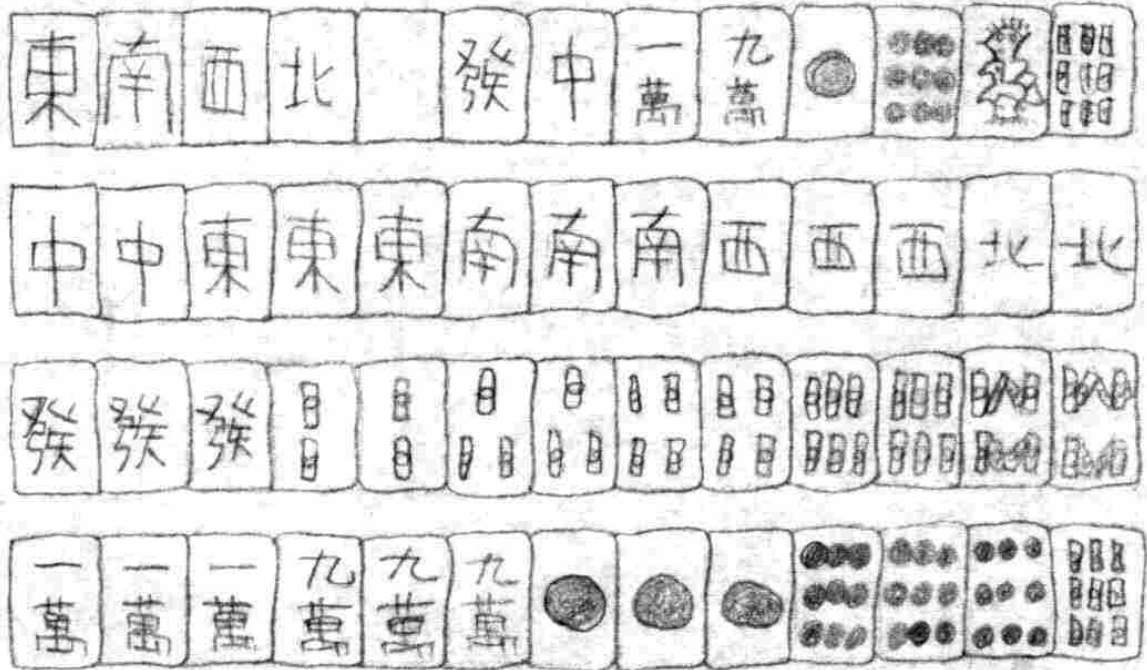 東南西北發中一萬九萬
中中東東東南南南西西西北北
發發發
一萬一萬一萬九萬九萬九萬